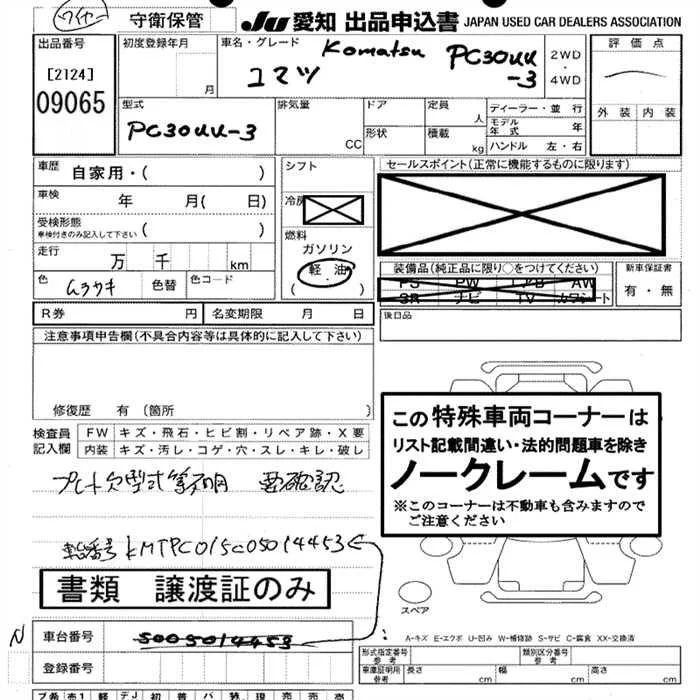 ワイヤー 守衛保管 JU 愛知 出品申込書 JAPAN USED CAR DEALERS ASSOCIATION
出品番号 初度登録年月 車名・グレード Komatsu PC30UU-3 2WD・4WD 評価点
[2124] 月 コマツ
09065
型式 排気量 ドア 定員 人 ディーラー・並行 外装 内装
PC30UU-3 CC 形状 積載 kg モデル年式 年
ハンドル 左・右
車歴 自家用・( ) シフト セールスポイント(正常に機能するものに限ります)
車検 年 月( 日) 冷房
受検形態 ( )
車検付きのみ記入して下さい 燃料
走行 万 千 km ガソリン
軽油
( )
装備品(純正品に限り○をつけてください) 新車保証書
色 ムラサキ 色替 色コード PS PW エアB AW 有・無
SR ナビ TV カワシート
R券 円 名変期限 月 日 後日品
注意事項申告欄(不具合内容等は具体的に記入して下さい)
修復歴 有 (箇所 )
この特殊車両コーナーは
リスト記載間違い・法的問題車を除き
ノークレームです
※このコーナーは不動車も含みますので
ご注意ください
検査員記入欄 FW キズ・飛石・ヒビ割・リペア跡・X要
内装 キズ・汚し・コゲ・穴・スレ・キレ・破し
プレート欠型式等不明 要確認
車台番号 KMTPC015C05014453
書類 譲渡証のみ
スペア
N 車台番号 5005014453
登録番号
A-キズ E-エクボ U-凹み W-補修跡 S-サビ C-腐食 XX-交換済
形式指定番号 参考 類別区分番号 参考
車庫証明用 参考 長さ cm 幅 cm 高さ cm